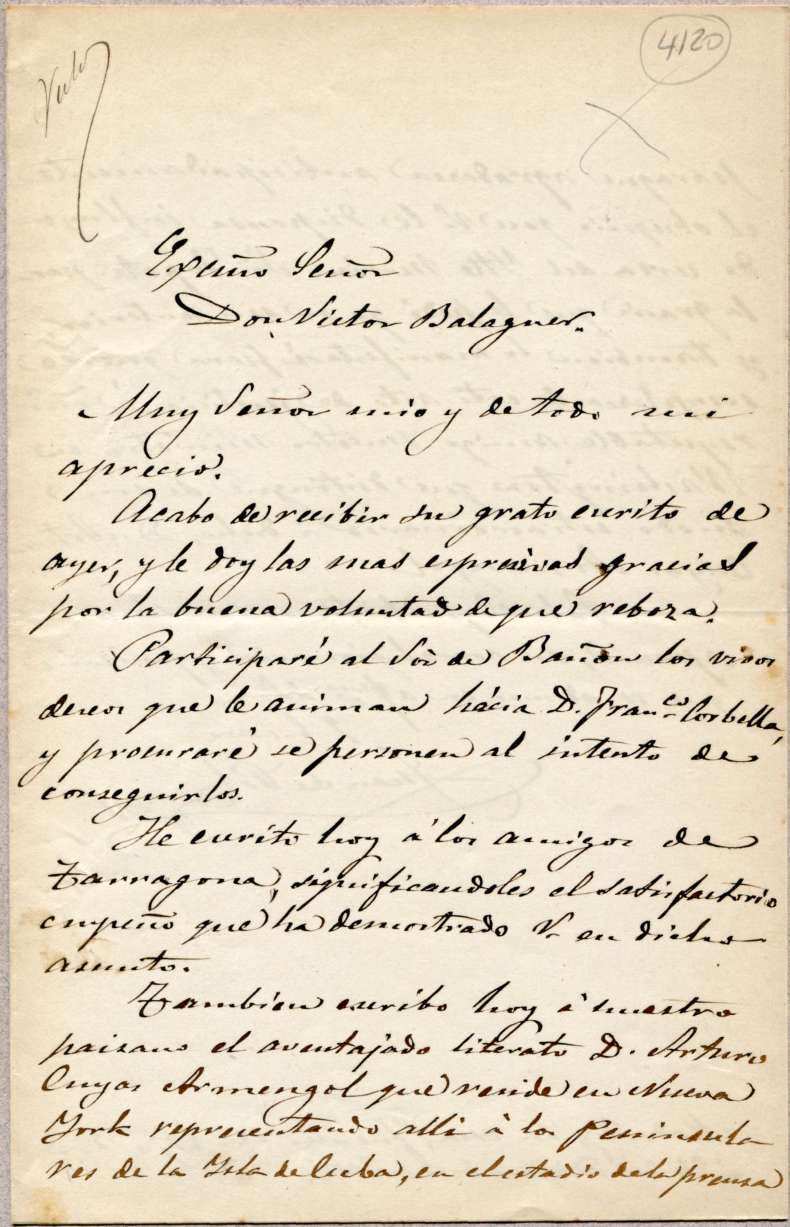 4120
Exçmo Señor
Don Victor Balaguer.
Muy Señor mio y de todo mi
aprecio.
Acabo de recibir su grato escrito de
ayer, y le doy las mas espresivas gracias
por la buena voluntad de que reboza.
Participaré al Sõr de Bañon los vivos
deseos que le animan hácia D. Franco Corbella,
y procuraré se personen al intento de
conseguirlos.
He escrito hoy á los amigos de
Tarragona, significandoles el satisfactorio
empeño que ha demostrado V. en dicho
asunto.
Tambien escribo hoy á nuestro
paisano el aventajado literato D. Arturo
Cuyas Armengol que reside en Nueva
York representando alli á los Peninsula
res de la Isla de Cuba, en el estadio de la prensa